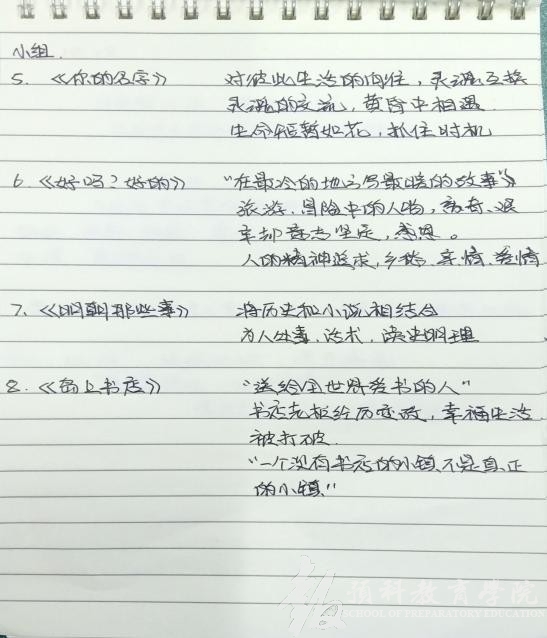 小组.
5. 《你的名字》 对彼此生活的向往，灵魂互换
灵魂的交流，黄昏中相遇.
生命短暂如花，抓住时机
6. 《好吗？好的》 "在最冷的地方写最暖的故事"
旅游、冒险中的人物，离奇、艰
辛却意志坚定，感恩。
人的精神追求，乡愁、亲情、爱情
7. 《明朝那些事》 将历史和小说相结合
为人处事、话术，读史明理
8. 《岛上书店》 "送给全世界爱书的人"
书店老板经历变故，幸福生活
被打破.
"一个没有书店的小镇不是真正
的小镇"
预科教育学院
SCHOOL OF PREPARATORY EDUCATION